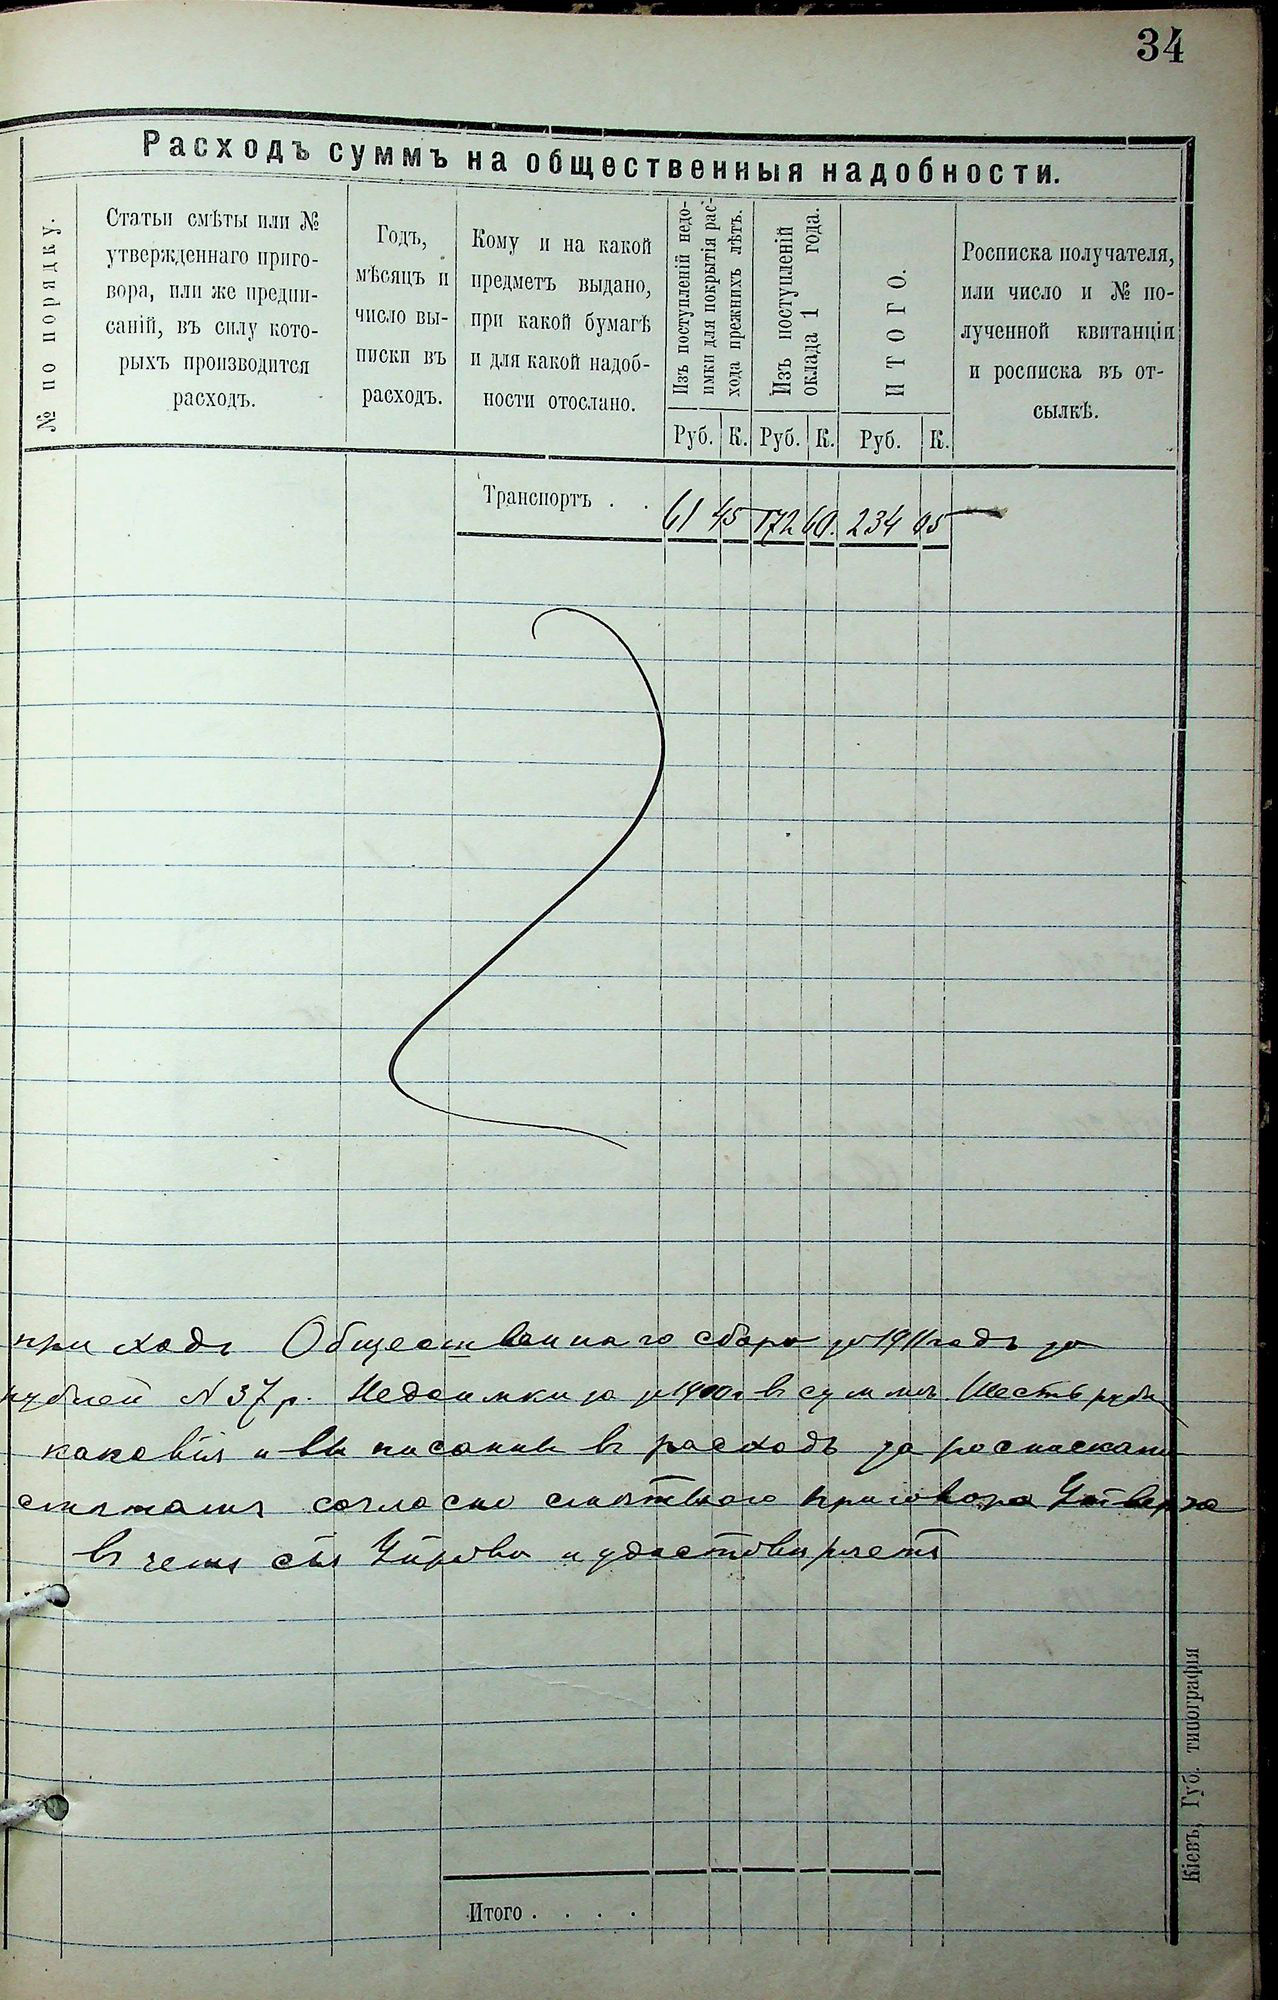 34
Расходъ суммъ на общественныя надобности.
№ по порядку.
Статьи смѣты или №
утвержденнаго приго-
вора, или же предпи-
саній, въ силу кото-
рыхъ производится
расходъ.
Годъ,
мѣсяцъ и
число вы-
писки въ
расходъ.
Кому и на какой
предметъ выдано,
при какой бумагѣ
и для какой надоб-
ности отослано.
Изъ поступленій недо-
имки для покрытія рас-
хода прежнихъ лѣтъ.
Изъ поступленій
оклада 1 года.
ИТОГО.
Росписка получателя,
или число и № по-
лученной квитанціи
и росписка въ от-
сылкѣ.
Руб. К. Руб. К. Руб. К.
Транспортъ . . 61 45 172 60. 234 05
приходъ Общественнаго сбора за 1911 годъ
рублей 37 р. Недоимки за в суммѣ Шесть
каковія и вы писани в расходъ за росписками
согласно сметнаго приговора
в чемъ Управа и удостовиряетъ
Итого . . . .
Кіевъ, Губ. типографія